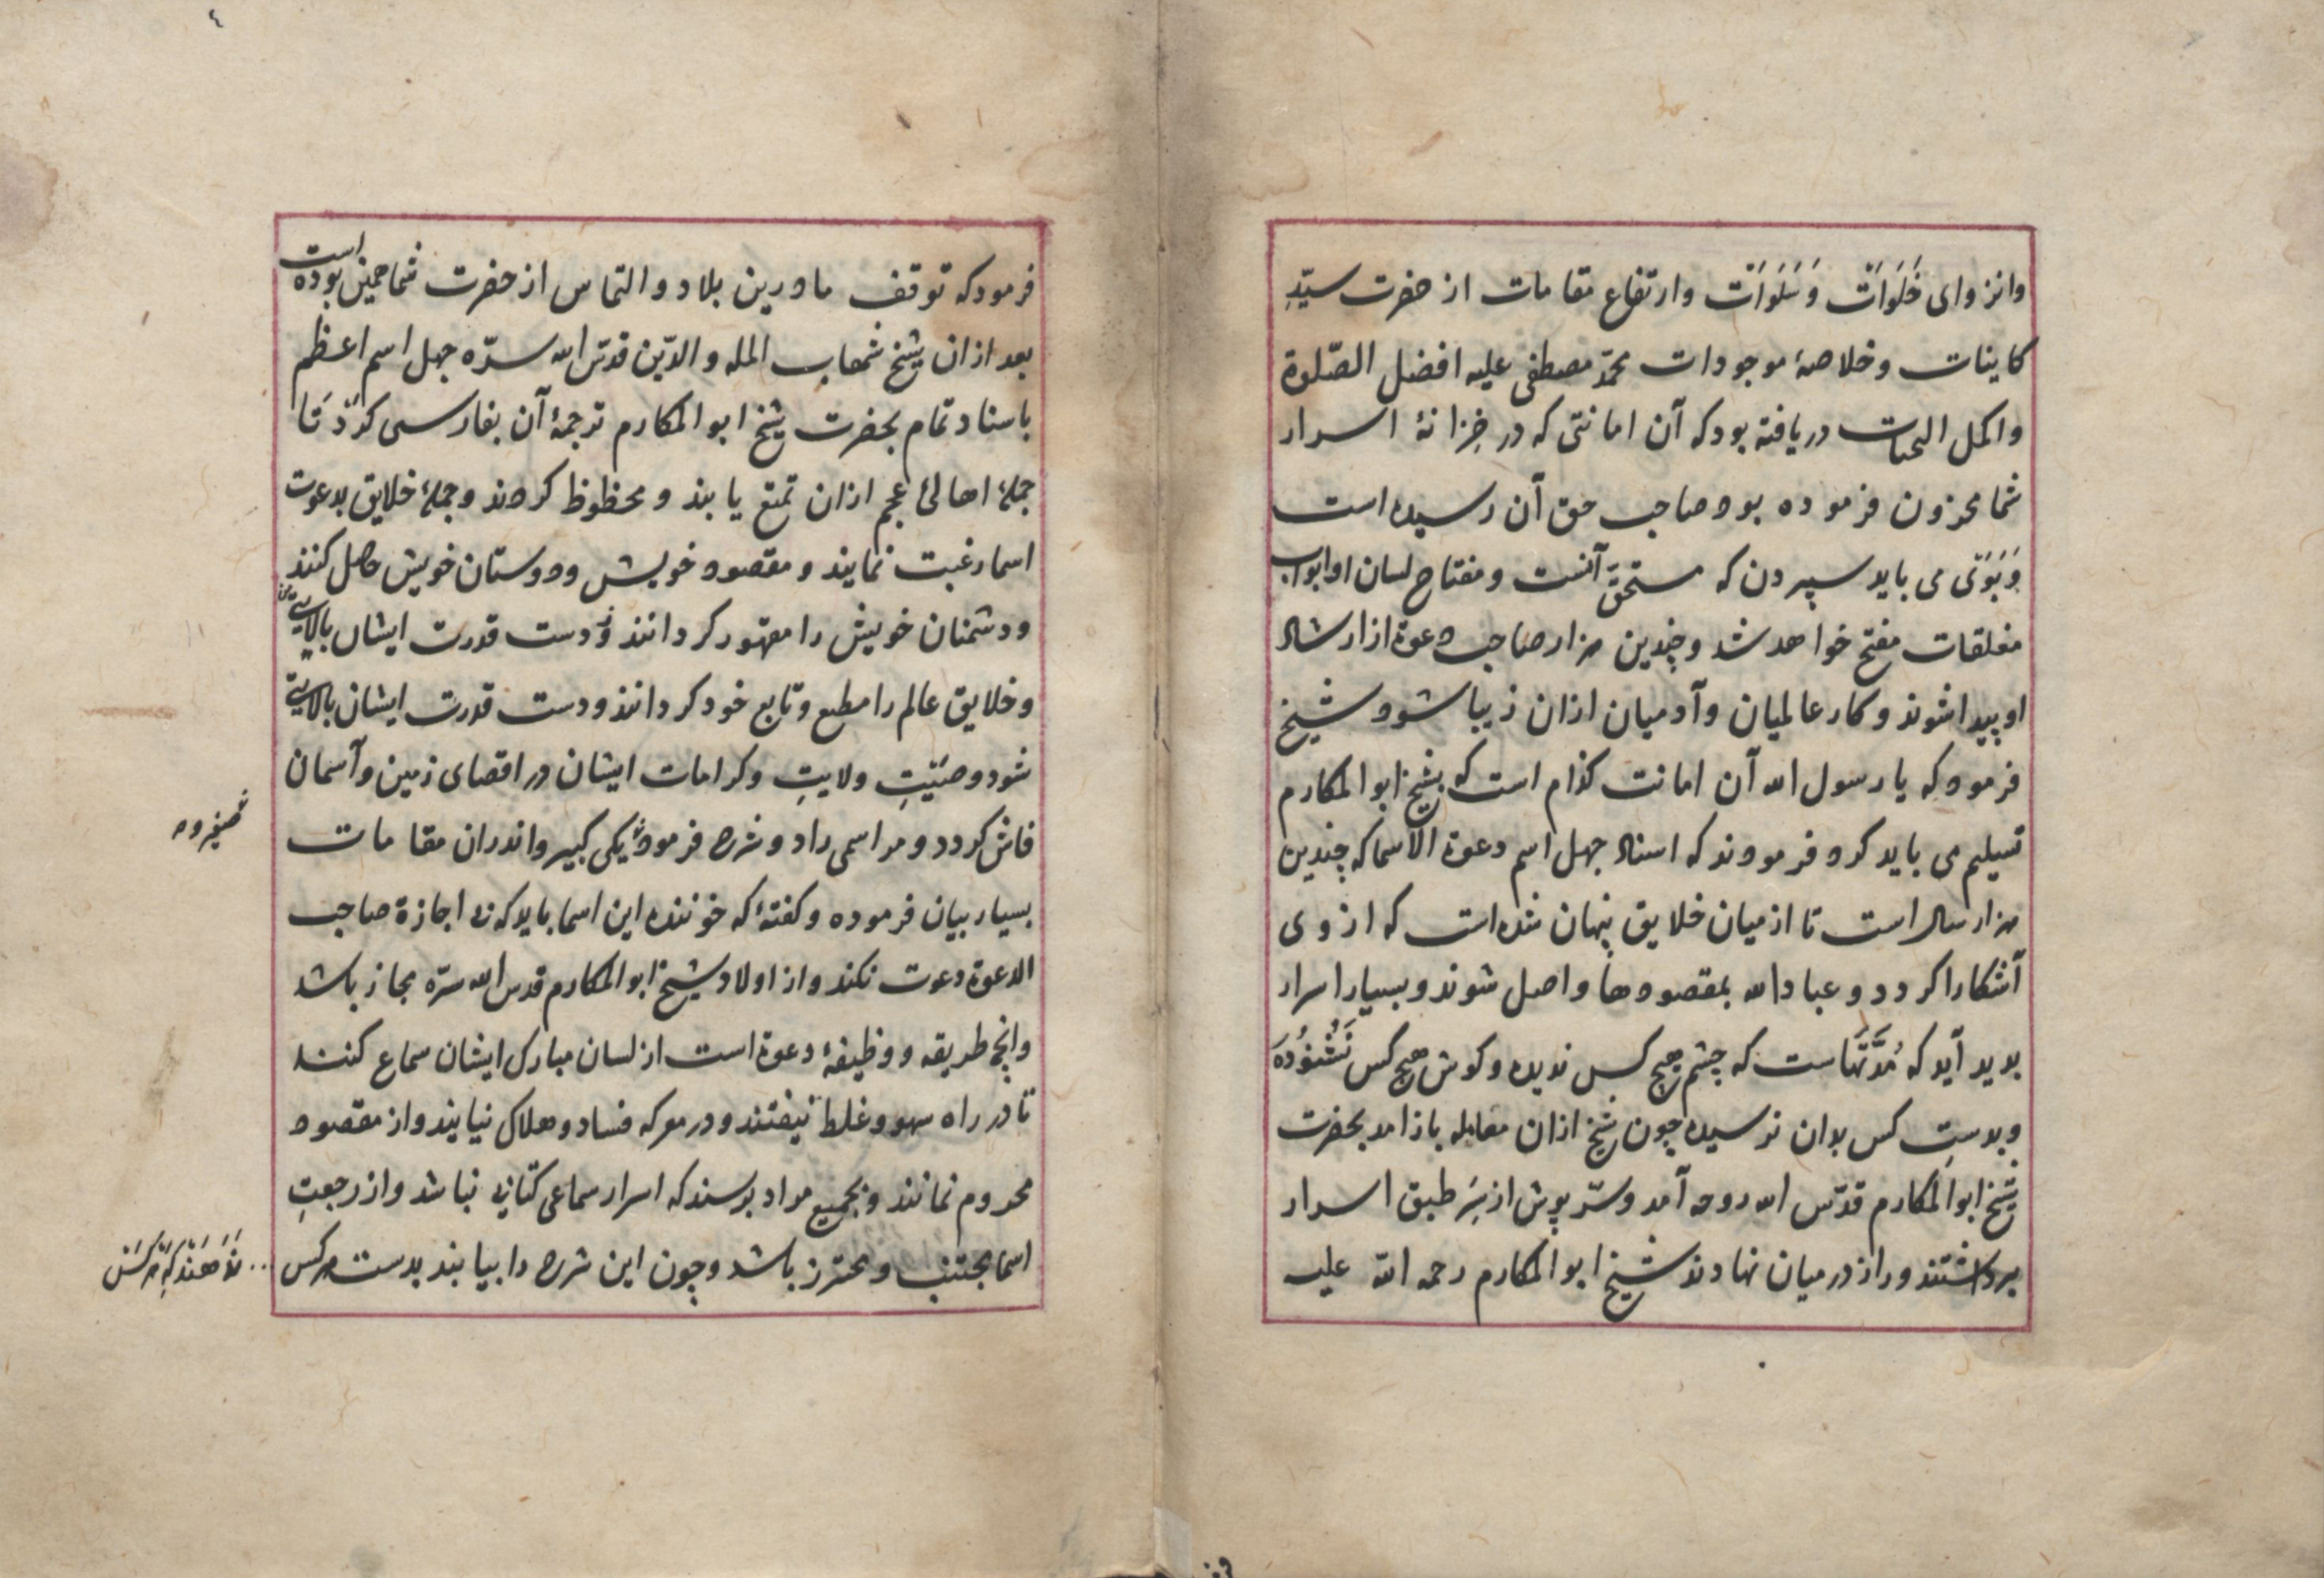 وانزوای خَلَوَات وَسَلَوَات وارتفاع مقامات از حضرت سیّدِ
کاینات وخلاصهٔ موجودات محمّد مصطفی علیه افضل الصّلوة
واکمل التحیات دریافته بود که آن امانتی که در خِزانهٔ اسرار
شما مخزون فرموده بود صاحب حق آن رسیده است
می باید سپردن که مستحقّ آنست ومفتاح لسان او ابواب
مغلقات مفتح خواهد شد وچندین هزار صاحب دعوة از ارشاد
او پیدا شوند وکار عالمیان وآدمیان ازان زیبا شود شیخ
فرمود که یا رسول الله آن امانت کذام است که بشیخ ابوالمکارم
تسلیم می باید کرد فرمودند که اسناد چهل اسم دعوة الاسما که چندین
هزار سال است تا از میان خلایق پنهان شده است که از وی
آشکارا کردد وعباد الله بمقصودها واصل شوند وبسیار اسرار
بدید آید که مُدّتهاست که چشم هیچ کس ندیده وکوش هیچ کس نَشُنُودَه
وبدستِ کس بدان نرسیده چون شیخ ازان معامله باز امد بحضرت
شیخ ابوالمکارم قدّس الله روحه آمد وسرّ پوش از سَرِ طبق اسرار
برداشتند وراز درمیان نهادند شیخ ابوالمکارم رحمة الله علیه
٤
فرمود که توقف ما درین بلاد والتماس از حضرت شما همین بوده است
بعد ازان شیخ شهاب المله والدّین قدّس الله سرّه چهل اسم اعظم
باسناد تمام بحضرت شیخ ابوالمکارم ترجمهٔ آن بفارسی کرد تا
جملهٔ اهالیٔ عجم ازان تمتع یابند ومحظوظ کردند وجملهٔ خلایق بدعوت
اسما رغبت نمایند ومقصود خویش ودوستان خویش حاصل کنند
ودشمنان خویش را مقهور کردانند ودست قدرت ایشان بالای
وخلایق عالم را مطیع وتابع خود کردانند ودست قدرت ایشان بالای
شود وصیتِ ولایتِ وکرامات ایشان در اقصای زمین وآسمان
فاش کردد ومر اسمی راد وشرح فرمود یکی کبیر واندران مقامات
بسیار بیان فرموده وکفتهٔ که خوننده این اسما باید که بی اجازة صاحب
الدعوة دعوت نکند واز اولاد شیخ ابوالمکارم قدس الله سرّه مجاز باشد
وانچه طریقه ووظیفهٔ دعوة است از لسان مبارک ایشان سماع کنند
تا در راه سهو وغلط نیفتند ودر معرکه فساد وهلاک نیایند واز مقصود
محروم نمانند وبجمیع مراد برسند که اسرار سماعی کتابی نباشد واز رجعتِ
اسما مجتنب ومحترز باشد وچون این شرح را بیابند بدست هرکس